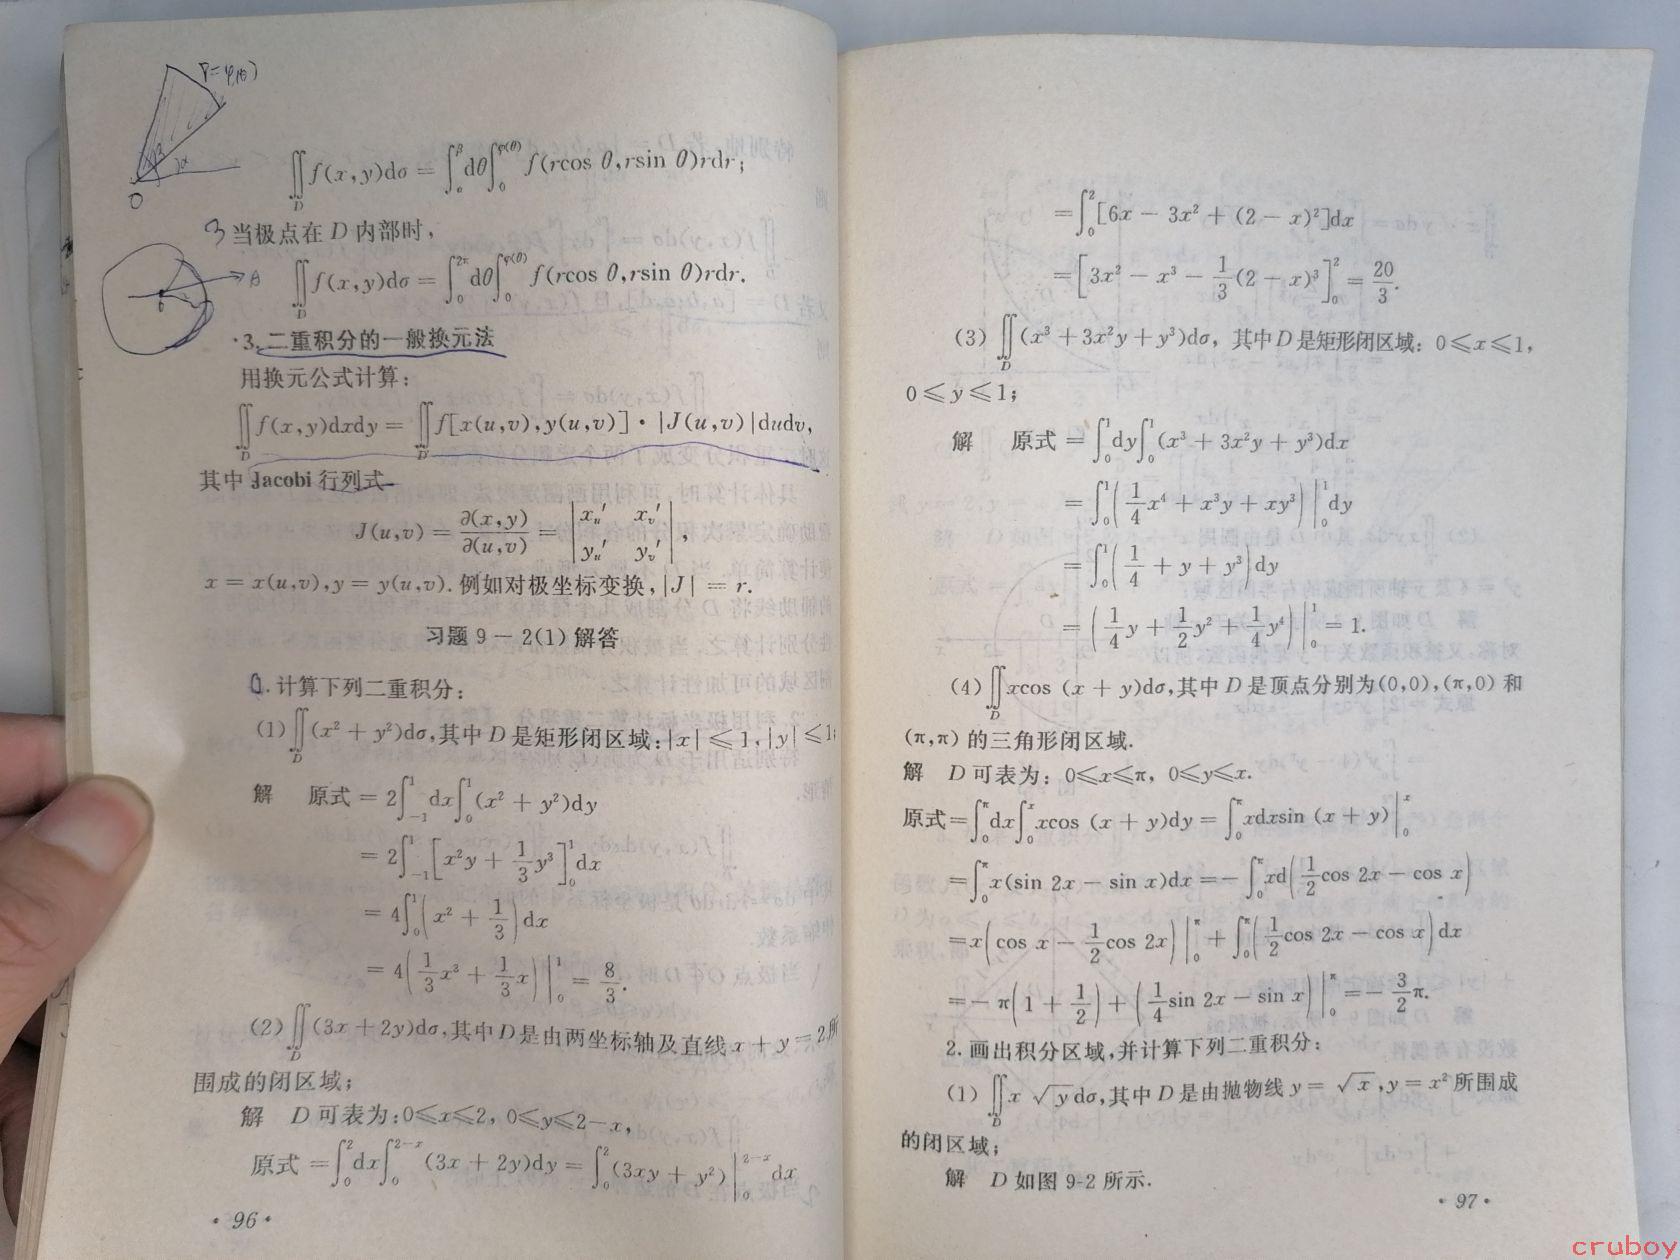 r=φ(θ)
β
α
O
∬_D f(x,y)dσ = ∫_α^β dθ∫_0^{φ(θ)} f(rcos θ,rsin θ)rdr;
3 当极点在 D 内部时,
∬_D f(x,y)dσ = ∫_0^{2π} dθ∫_0^{φ(θ)} f(rcos θ,rsin θ)rdr.
·3. 二重积分的一般换元法
用换元公式计算:
∬_D f(x,y)dxdy = ∬_{D'} f[x(u,v),y(u,v)]·|J(u,v)|dudv,
其中 Jacobi 行列式
J(u,v) = ∂(x,y)/∂(u,v) = |x_u' x_v'; y_u' y_v'|,
x = x(u,v),y = y(u,v). 例如对极坐标变换,|J| = r.
习题 9－2(1) 解答
1. 计算下列二重积分:
(1) ∬_D (x² + y²)dσ,其中 D 是矩形闭区域:|x|≤1,|y|≤1;
解 原式 = 2∫_{-1}^1 dx∫_0^1 (x² + y²)dy
= 2∫_{-1}^1 [x²y + 1/3 y³]_0^1 dx
= 4∫_0^1 (x² + 1/3)dx
= 4(1/3 x³ + 1/3 x)|_0^1 = 8/3.
(2) ∬_D (3x + 2y)dσ,其中 D 是由两坐标轴及直线 x + y = 2 所
围成的闭区域;
解 D 可表为:0≤x≤2, 0≤y≤2－x,
原式 = ∫_0^2 dx∫_0^{2-x} (3x + 2y)dy = ∫_0^2 (3xy + y²)|_0^{2-x} dx
· 96 ·
= ∫_0^2 [6x － 3x² + (2 － x)²]dx
= [3x² － x³ － 1/3 (2 － x)³]_0^2 = 20/3.
(3) ∬_D (x³ + 3x²y + y³)dσ, 其中 D 是矩形闭区域: 0≤x≤1,
0≤y≤1;
解 原式 = ∫_0^1 dy∫_0^1 (x³ + 3x²y + y³)dx
= ∫_0^1 (1/4 x⁴ + x³y + xy³)|_0^1 dy
= ∫_0^1 (1/4 + y + y³)dy
= (1/4 y + 1/2 y² + 1/4 y⁴)|_0^1 = 1.
(4) ∬_D xcos (x + y)dσ,其中 D 是顶点分别为(0,0),(π,0) 和
(π,π) 的三角形闭区域.
解 D 可表为: 0≤x≤π, 0≤y≤x.
原式=∫_0^π dx∫_0^x xcos (x + y)dy = ∫_0^π xdxsin (x + y)|_0^x
=∫_0^π x(sin 2x － sin x)dx =－ ∫_0^π xd(1/2 cos 2x － cos x)
=x(cos x － 1/2 cos 2x)|_0^π + ∫_0^π (1/2 cos 2x － cos x)dx
=－ π(1 + 1/2) + (1/4 sin 2x － sin x)|_0^π =－ 3/2 π.
2. 画出积分区域,并计算下列二重积分:
(1) ∬_D x √y dσ,其中 D 是由抛物线 y = √x ,y = x² 所围成
的闭区域;
解 D 如图 9-2 所示.
· 97 ·
cruboy